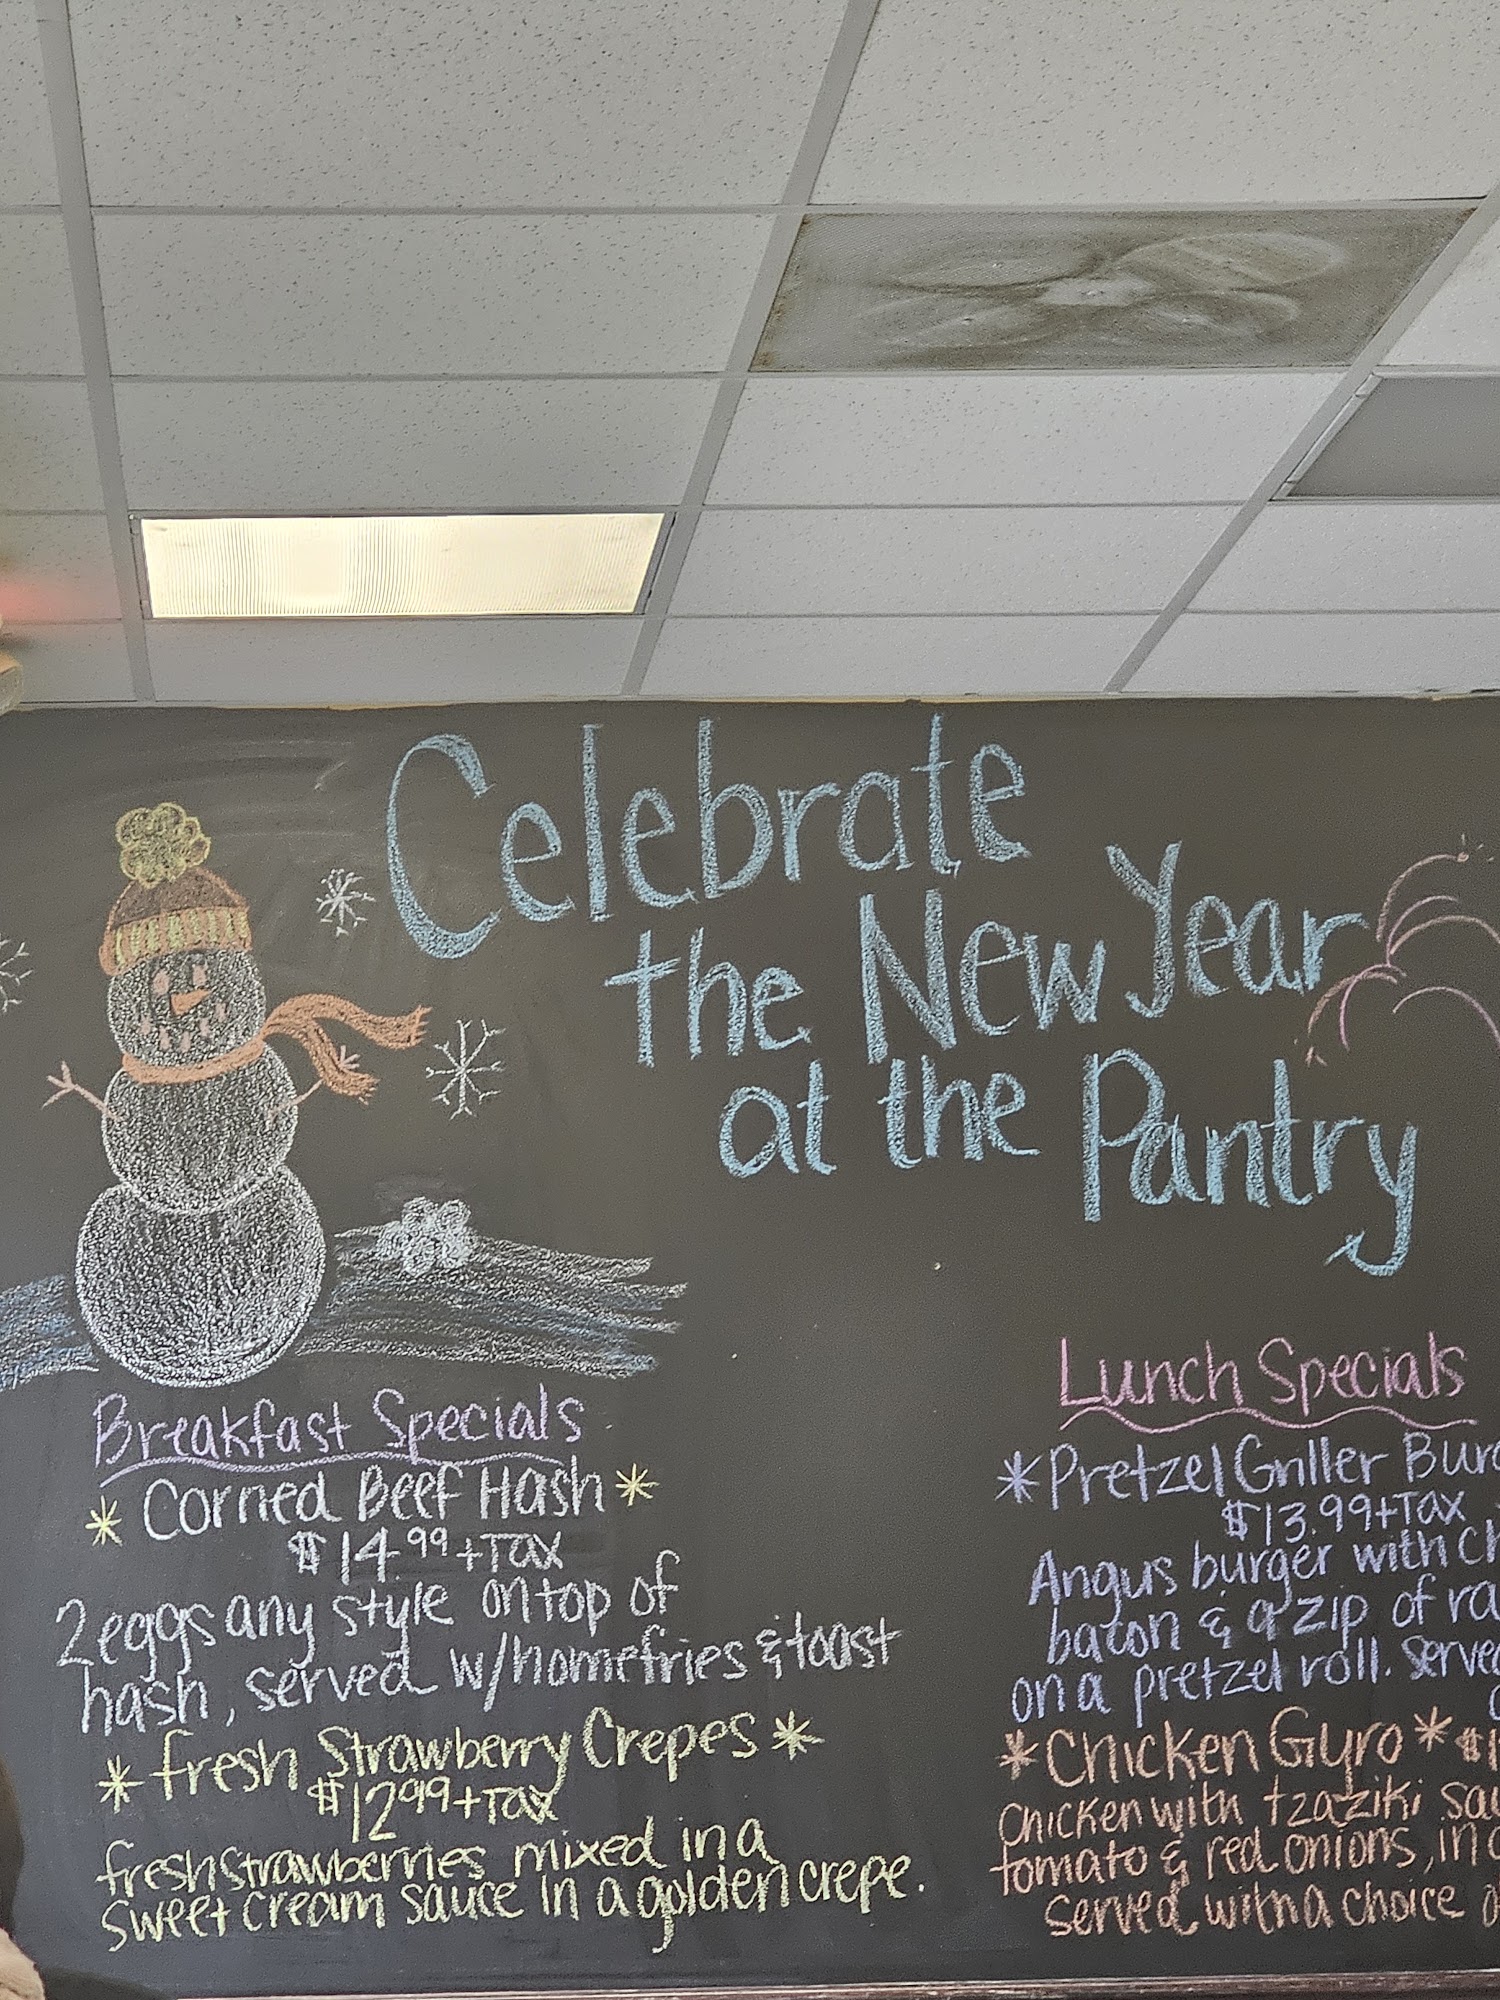 Celebrate
the New Year
at the Pantry
Breakfast Specials
* Corned Beef Hash *
$14.99 + Tax
2 eggs any style on top of
hash, served w/homefries & toast
* fresh Strawberry Crepes *
$12.99 + Tax
fresh strawberries mixed in a
sweet cream sauce in a golden crepe.
Lunch Specials
* Pretzel Griller
$13.99 + Tax
Angus burger with
bacon & a zip of
on a pretzel roll.
* Chicken Gyro *
Chicken with tzaziki
tomato & red onions, in
served with a choice